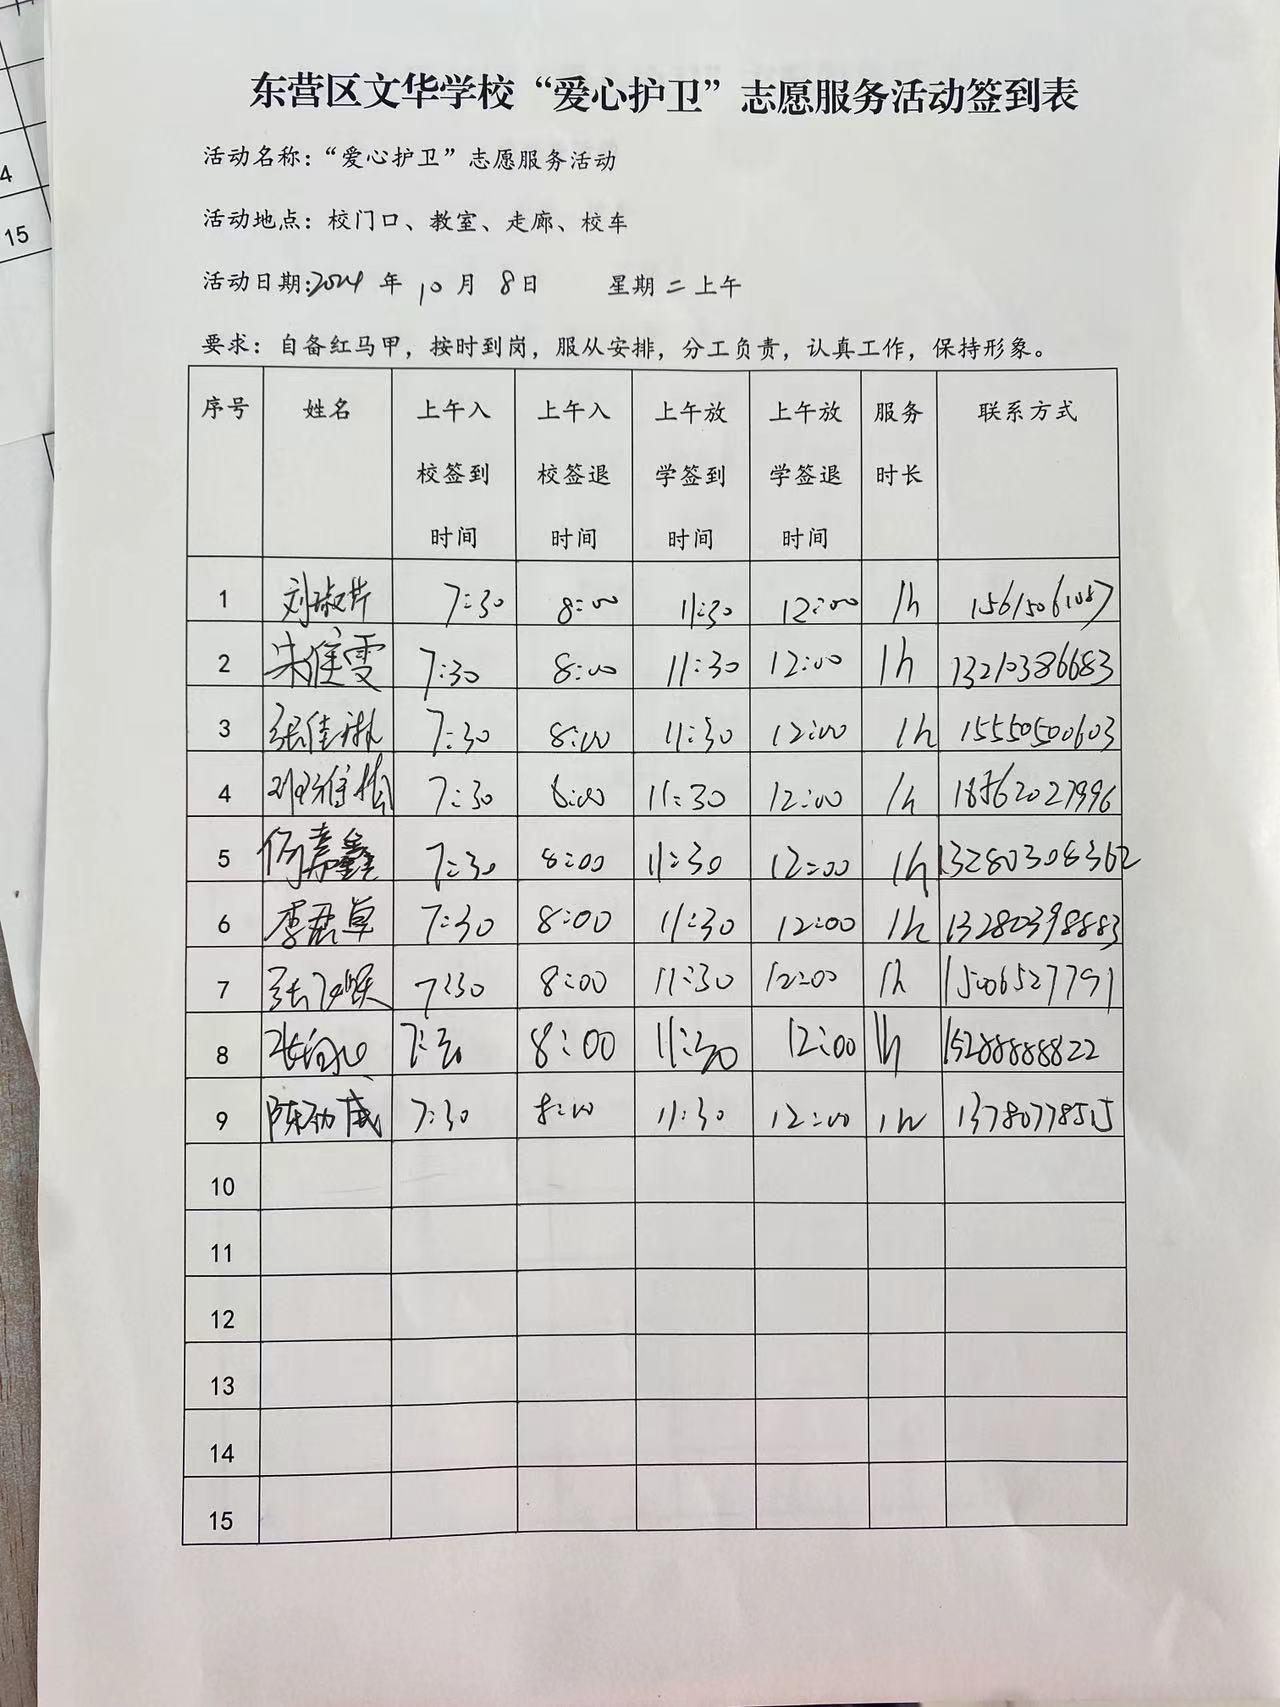 4
15
东营区文华学校“爱心护卫”志愿服务活动签到表
活动名称：“爱心护卫”志愿服务活动
活动地点：校门口、教室、走廊、校车
活动日期:2024 年 10 月 8日 星期 二 上午
要求：自备红马甲，按时到岗，服从安排，分工负责，认真工作，保持形象。
序号 姓名 上午入校签到时间 上午入校签退时间 上午放学签到时间 上午放学签退时间 服务时长 联系方式
1 刘淑芹 7:30 8:00 11:30 12:00 1h 15615061087
2 朱雯 7:30 8:00 11:30 12:00 1h 13210386683
3 张佳琳 7:30 8:00 11:30 12:00 1h 15550500603
4 7:30 8:00 11:30 12:00 1h 18562027996
5 何嘉鑫 7:30 8:00 11:30 12:00 1h 13280308362
6 李君卓 7:30 8:00 11:30 12:00 1h 13280398883
7 张 7:30 8:00 11:30 12:00 1h 15006527791
8 张 7:30 8:00 11:30 12:00 1h 15288888822
9 陈威 7:30 8:00 11:30 12:00 1h 13780778515
10
11
12
13
14
15